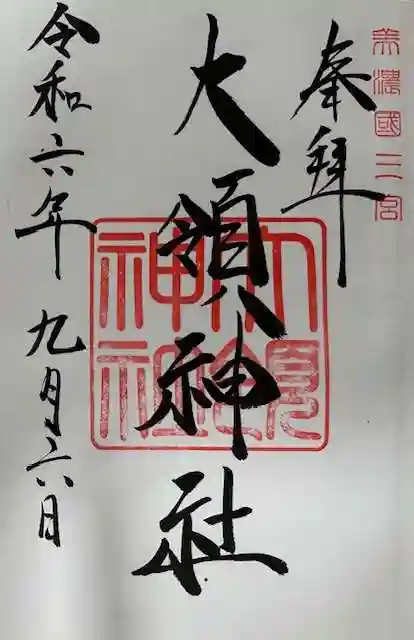 美濃國二宮
奉拝
大領神社
大領神社
令和六年九月六日